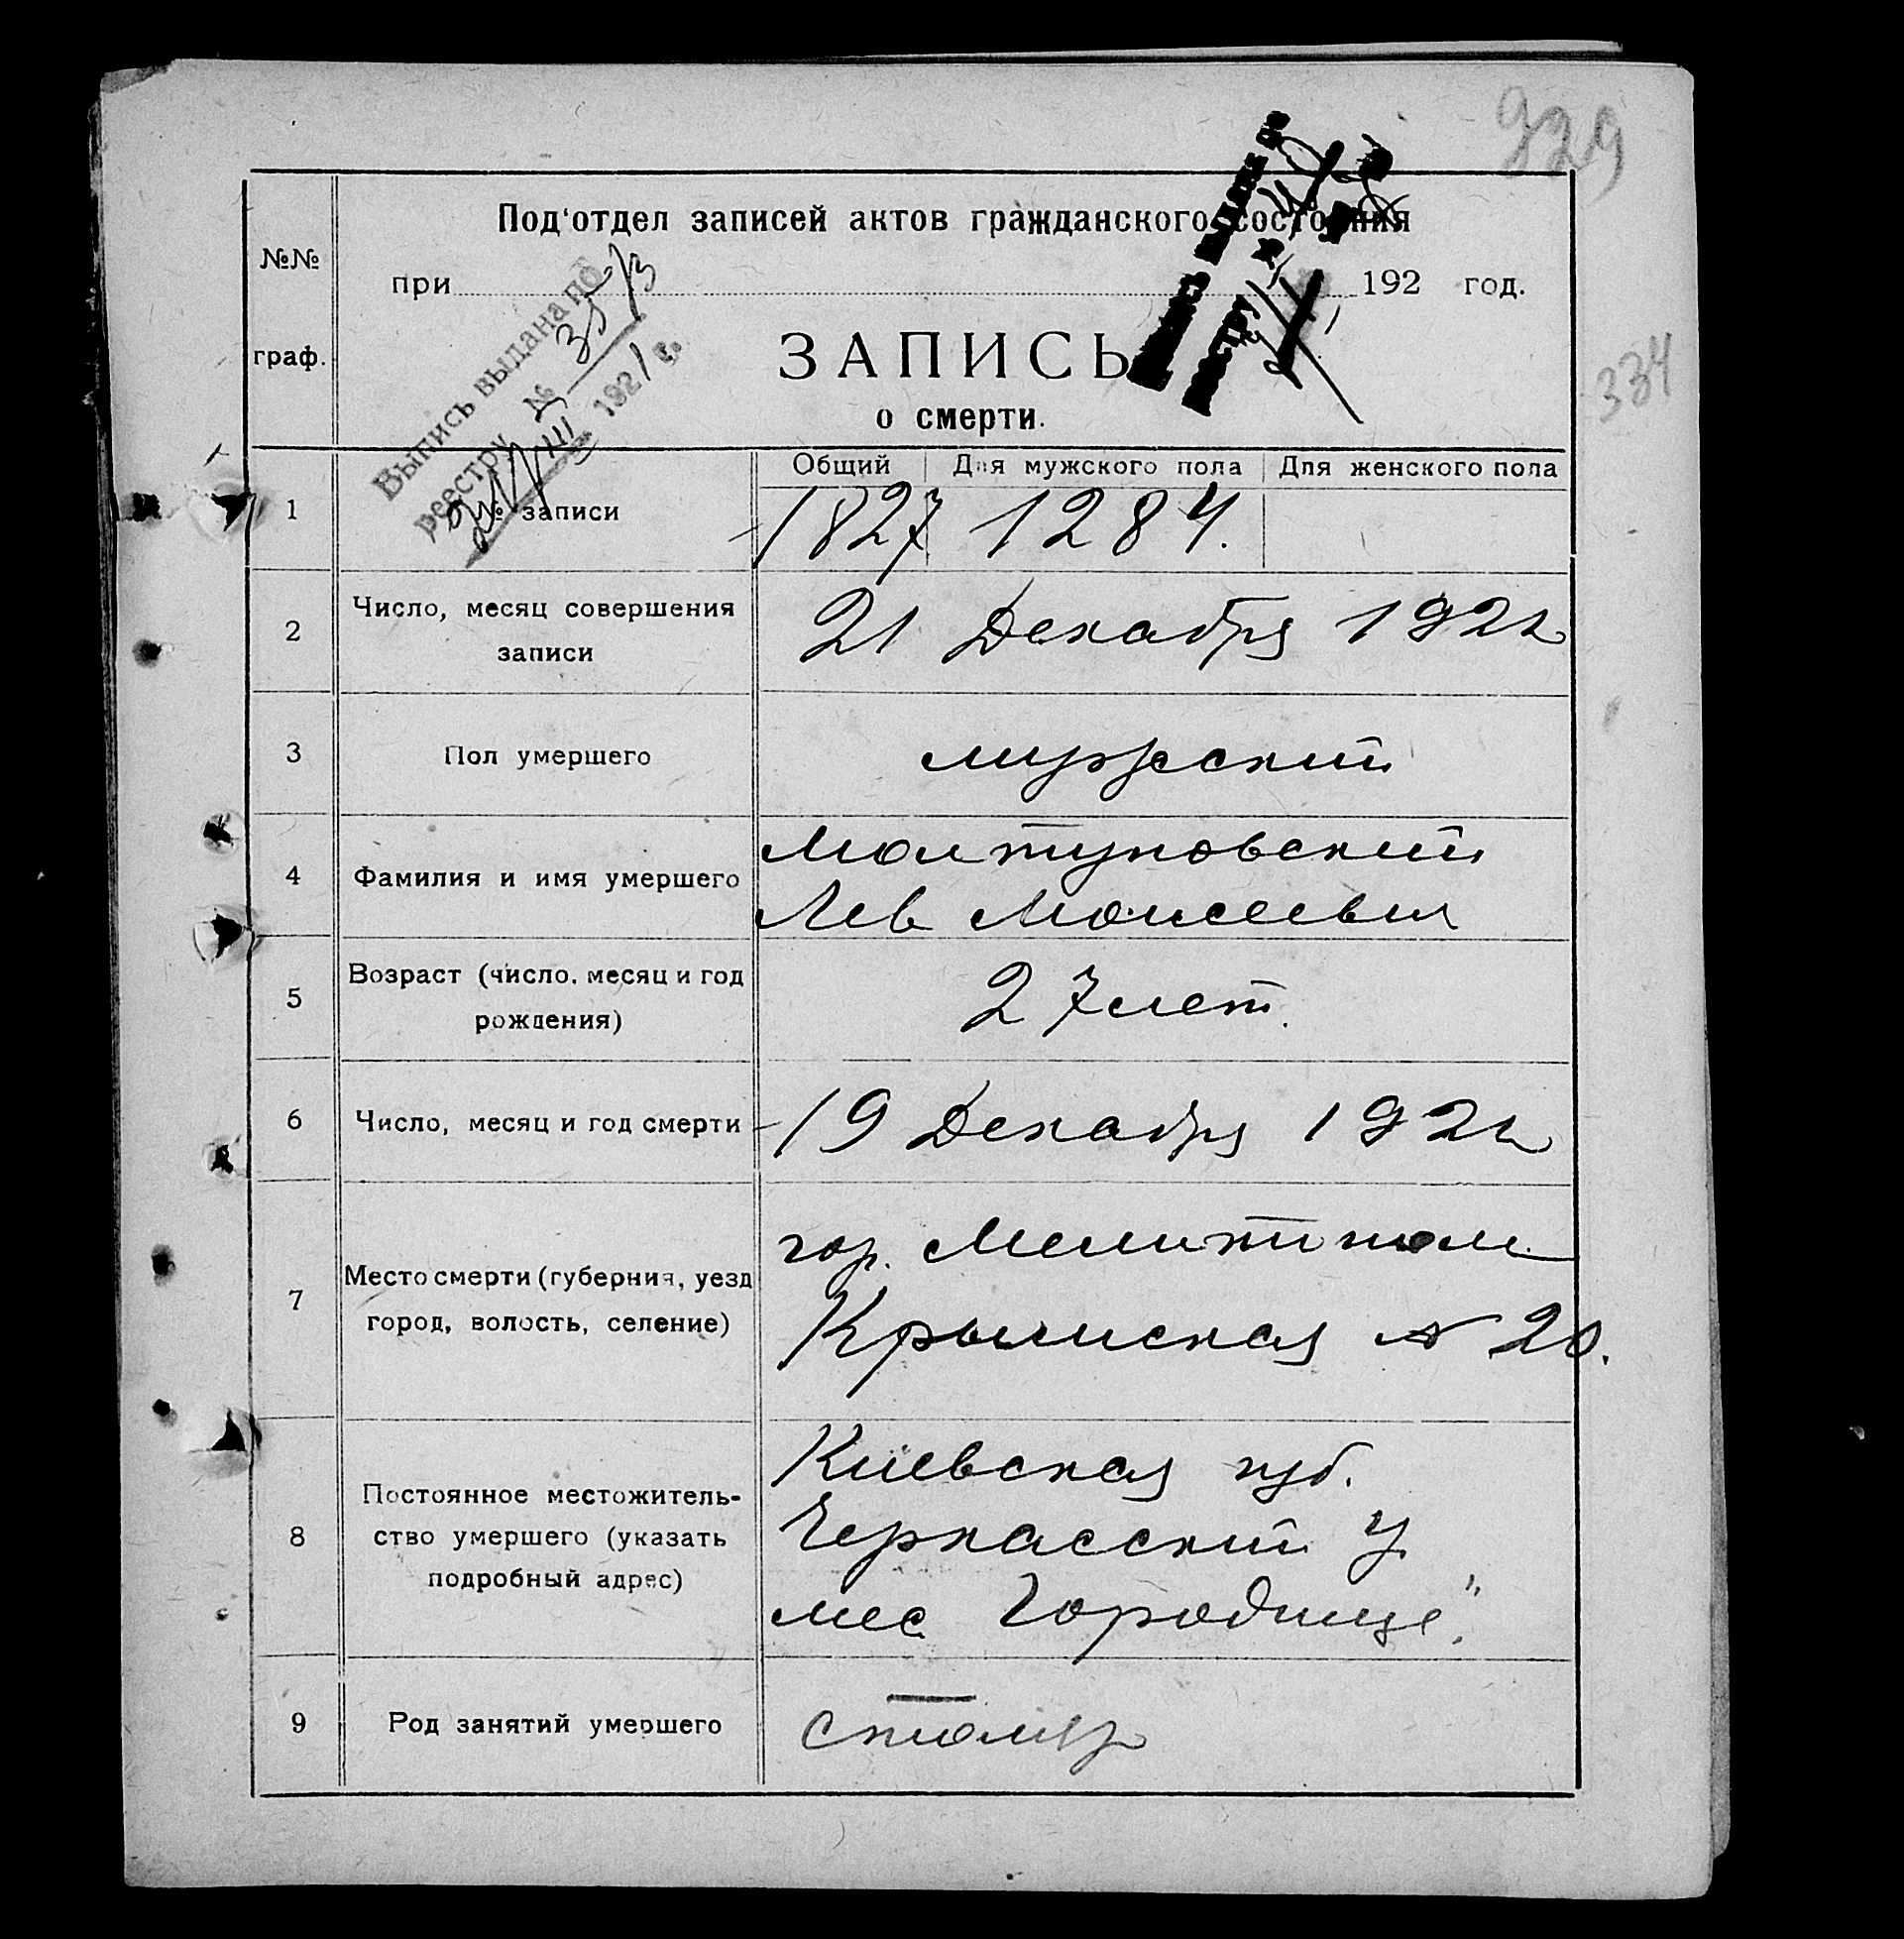 329
334
Под'отдел записей актов гражданского состояния
№№ граф.
при 192 год.
Выпись выдана по
реестру № 35/3
1921 г.
ЗАПИСЬ
о смерти.
Общий Для мужского пола Для женского пола
1 № записи 1827 1284.
2 Число, месяц совершения
записи
21 Декабря 192
3 Пол умершего мужской
4 Фамилия и имя умершего
Лев Моисеевич
5 Возраст (число, месяц и год
рождения)
27 лет.
6 Число, месяц и год смерти 19 Декабря 192
7 Место смерти (губерния, уезд
город, волость, селение)
гор. Мелитополь
Крымская № 20.
8 Постоянное местожитель-
ство умершего (указать
подробный адрес)
Киевская губ.
Черкасский у.
мес. Городище".
9 Род занятий умершего столяр